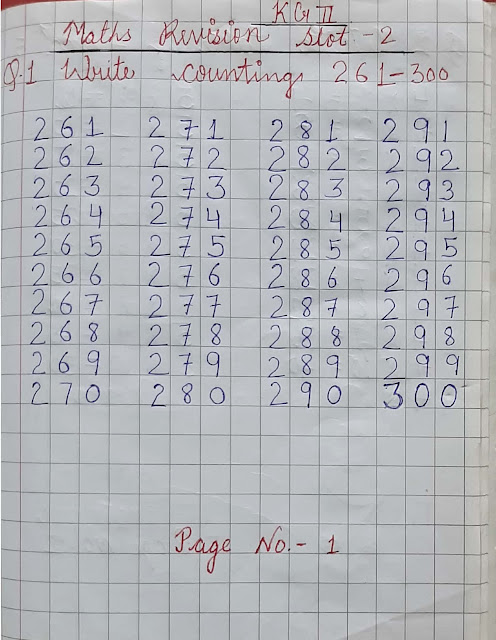 KG II
Maths Revision Slot - 2
Q.1 Write counting 261-300
261 271 281 291
262 272 282 292
263 273 283 293
264 274 284 294
265 275 285 295
266 276 286 296
267 277 287 297
268 278 288 298
269 279 289 299
270 280 290 300
Page No.- 1